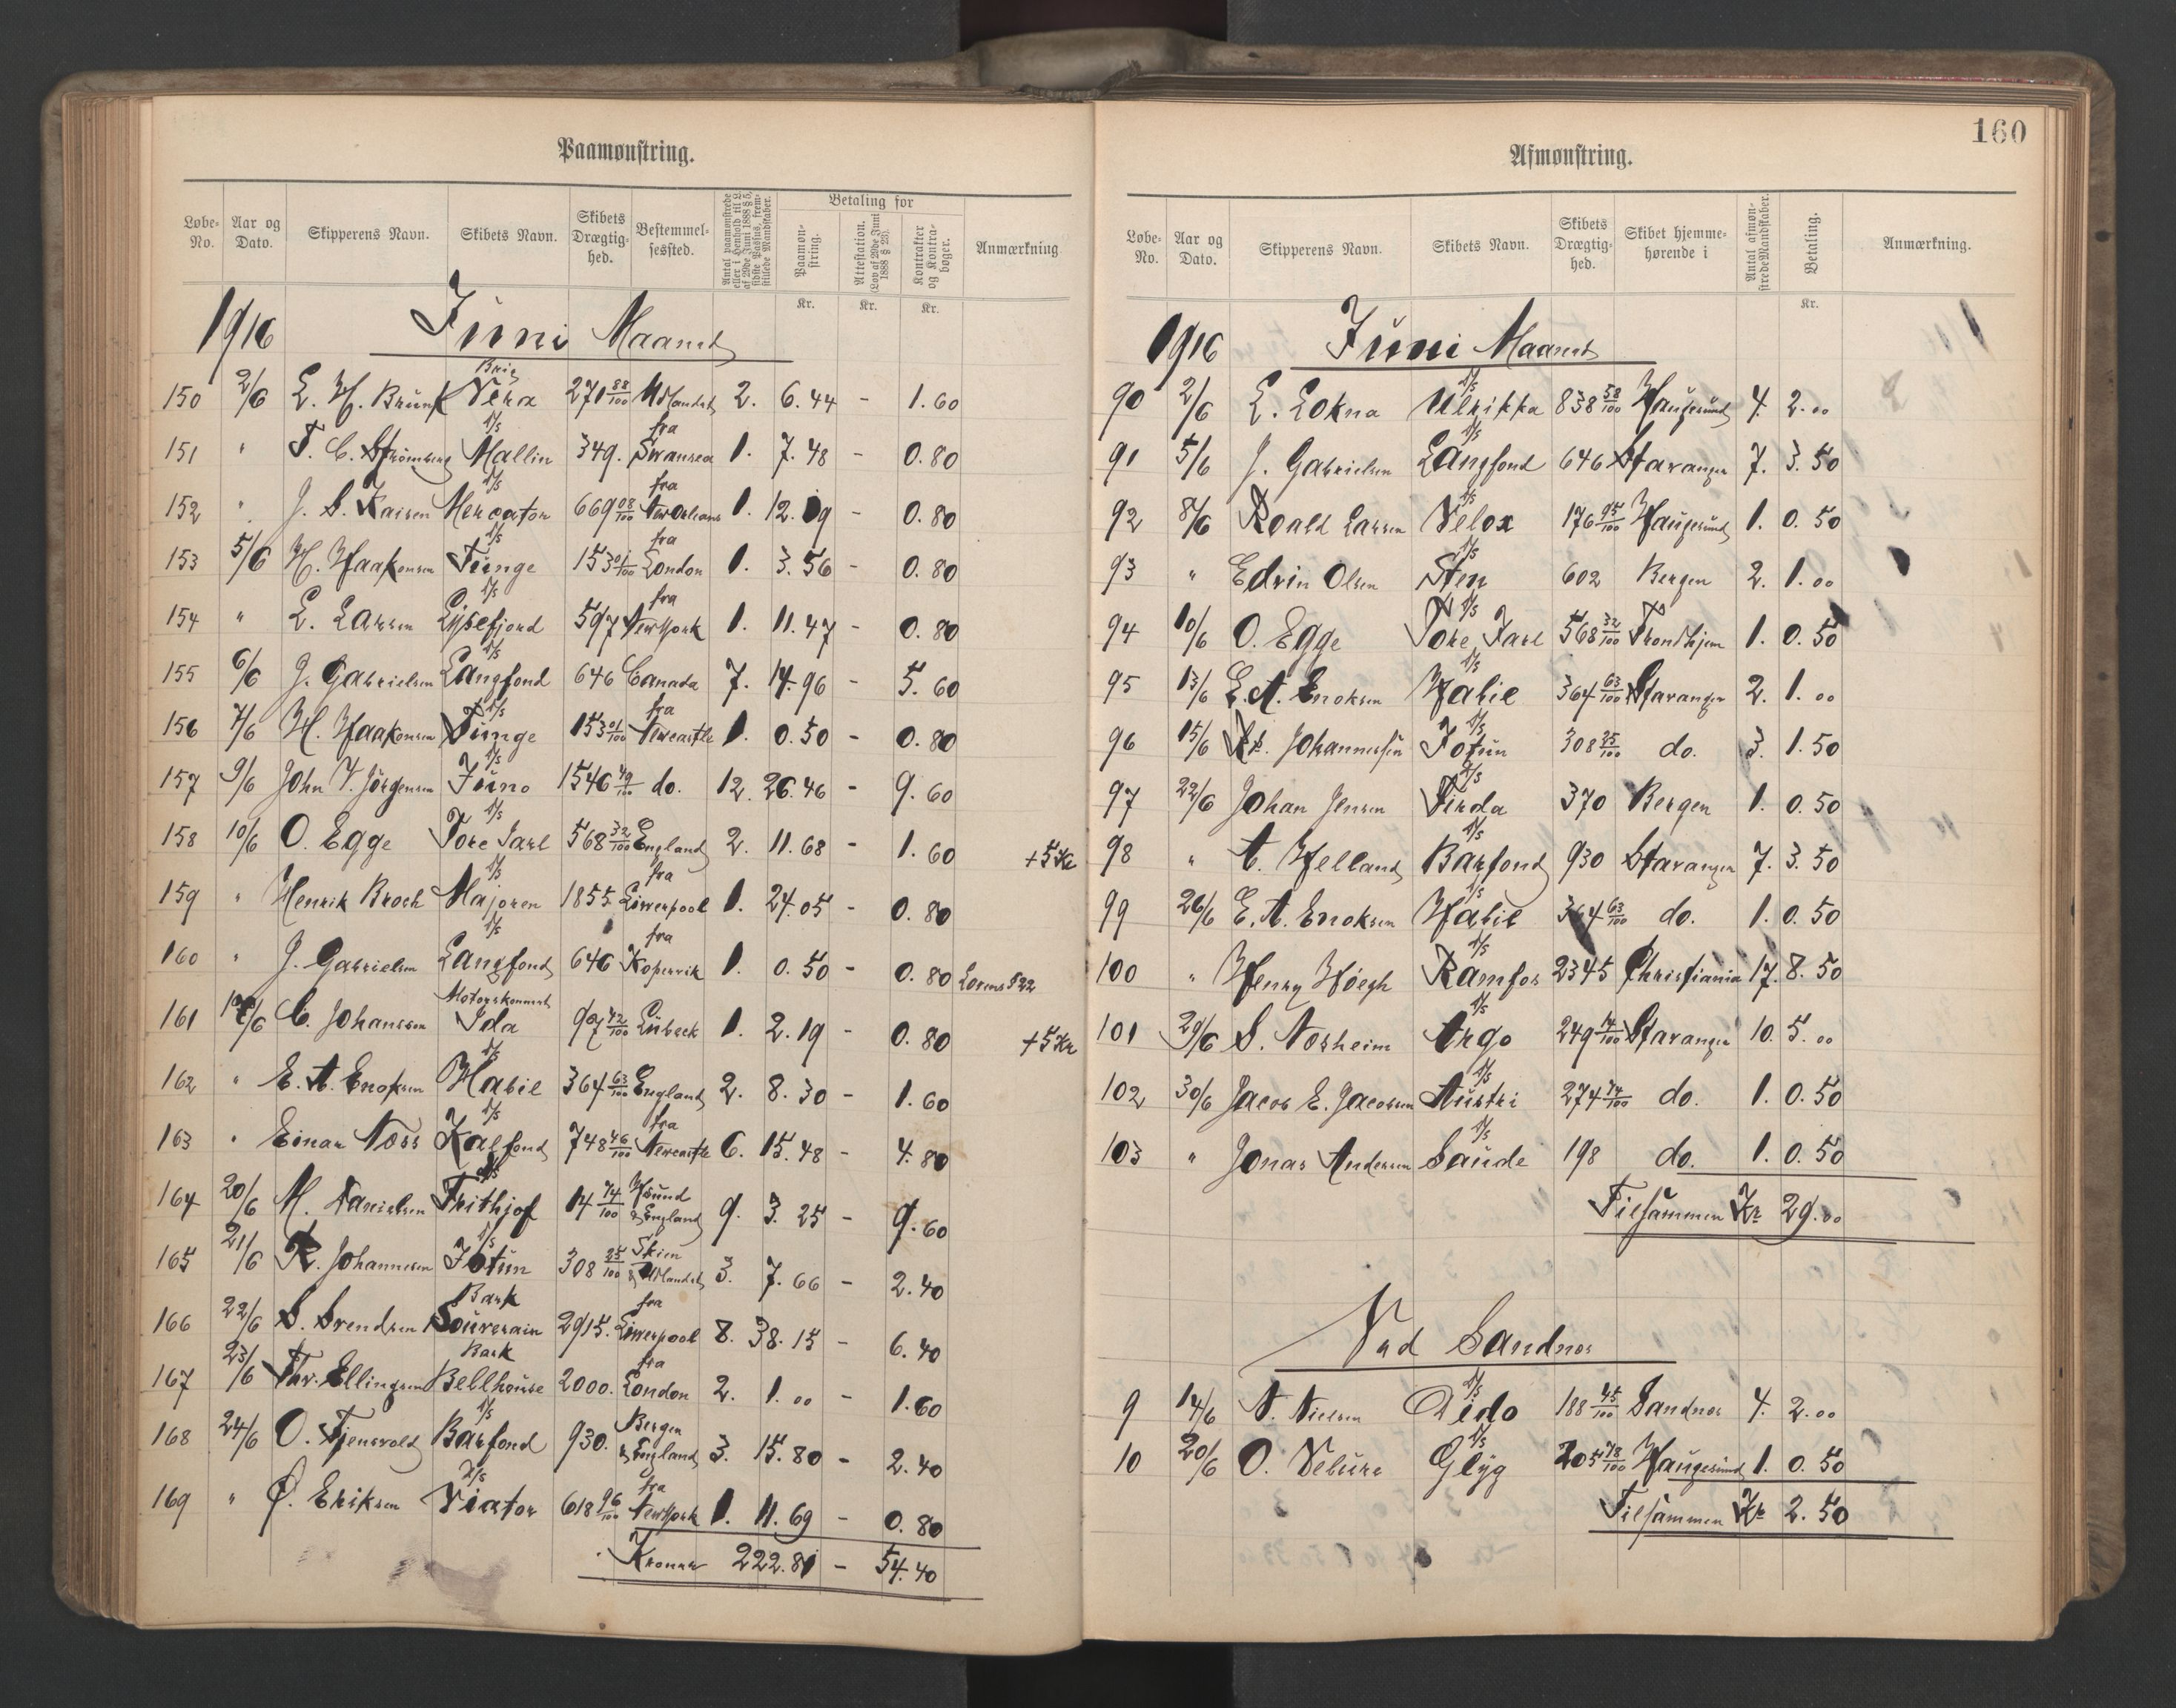 Paamønstring.
Løbe-No. Aar og Dato. Skipperens Navn. Skibets Navn. Skibets Drægtighed. Bestemmelsessted. Antal paamønstrede eller i Henhold til L. af 29de Juni 1888 § 5, sidste Passus, fremstillede Mandskaber. Betaling for Paamønstring. Attestation. (Lov af 29de Juni 1888 § 23). Kontrakter og Kontrabøger. Anmærkning
Kr. Kr. Kr.
1916 Juni Maaned
150 2/6 L. H. Brunk Brig Vera 271 88/100 Udlandet 2. 6.44 - 1.60
151 " T. C. Strömberg D/s Mallin 349. fra Swansea 1. 7.48 - 0.80
152 " J. S. Kaisen D/s Mercator 669 08/100 fra New Orleans 1. 12.19 - 0.80
153 5/6 H. Haakonsen D/s Tunge 153 01/100 fra London 1. 3.56 - 0.80
154 " L. Larsen D/s Lysefjord 597 fra New York 1. 11.47 - 0.80
155 6/6 J. Gabrielsen D/s Langfond 646 Canada 7. 14.96 - 5.60
156 7/6 H. Haakonsen D/s Tunge 153 01/100 fra Newcastle 1. 0.50 - 0.80
157 9/6 John V. Jörgensen D/s Juno 1546 49/100 do. 12. 26.46 - 9.60
158 10/6 O. Egge D/s Tore Jarl 568 32/100 England 2. 11.68 - 1.60 +5 Kr
159 " Henrik Broch D/s Majoren 1855. fra Liverpool 1. 24.05 - 0.80
160 " J. Gabrielsen D/s Langfond 646 fra Kopervik 1. 0.50 - 0.80 Lovens § 22
161 /6 C. Johansson Motorskonnert Ida 97 42/100 Lübeck 1. 2.19 - 0.80 +5 Kr
162 " E. A. Enoksen D/s Habil 364 63/100 England 2. 8.30 - 1.60
163 " Einar Næss D/s Kalfond 748 46/100 fra Newcastle 6. 15.48 - 4.80
164 20/6 M. Danielsen D/s Frithjof 14 74/100 H.sund & England 9. 3.25 - 9.60
165 21/6 R. Johannesen D/s Jotun 308 25/100 Skien & Udlandet 3. 7.66 - 2.40
166 22/6 S. Svendsen Bark Souverain 2915. fra Liverpool 8. 38.15 - 6.40
167 23/6 Thv. Ellingsen Bark Bellhouse 2000. fra London 2. 1.00 - 1.60
168 24/6 O. Tjensvold D/s Barfond 930. Bergen & England 3. 15.80 - 2.40
169 " O. Eriksen D/s Viator 618 96/100 fra New York 1. 11.69 - 0.80
Kroner 222.81 - 54.40
160
Afmønstring.
Løbe-No. Aar og Dato. Skipperens Navn. Skibets Navn. Skibets Drægtighed. Skibet hjemmehørende i Antal afmønstrede Mandskaber. Betaling. Anmærkning.
Kr.
1916 Juni Maaned
90 2/6 L. Lokna D/s Ulrikka 838 58/100 Haugesund 4. 2.00
91 5/6 J. Gabrielsen D/s Langfond 646 Stavanger 7. 3.50
92 8/6 Roald Larsen D/s Velox 176 95/100 Haugesund 1. 0.50
93 " Edvin Olsen D/s Sten 602 Bergen 2. 1.00
94 10/6 O. Egge D/s Tore Jarl 568 32/100 Trondhjem 1. 0.50
95 13/6 E. A. Enoksen D/s Habil 364 63/100 Stavanger 2. 1.00
96 15/6 R. Johannessen D/s Jotun 308 25/100 do. 3. 1.50
97 22/6 Johan Jensen D/s Firda 370 Bergen 1. 0.50
98 " A. Helland D/s Barfond 930 Stavanger 7. 3.50
99 26/6 E. A. Enoksen D/s Habil 364 63/100 do. 1. 0.50
100 " Henry Høegh D/s Ramfos 2345 Christiania 17. 8.50
101 29/6 S. Norheim D/s Argo 249 14/100 Stavanger 10. 5.00
102 30/6 Jacob E. Jacobsen D/s Austri 274 74/100 do. 1. 0.50
103 " Jonas Andersen D/s Saude 198 do. 1. 0.50
Tilsammen Kr 29.00
Ved Sandnes
9 14/6 N. Nielsen D/s Dido 188 45/100 Sandnes 4. 2.00
10 20/6 O. Velure D/s Glyg 205 78/100 Haugesund 1. 0.50
Tilsammen Kr 2.50